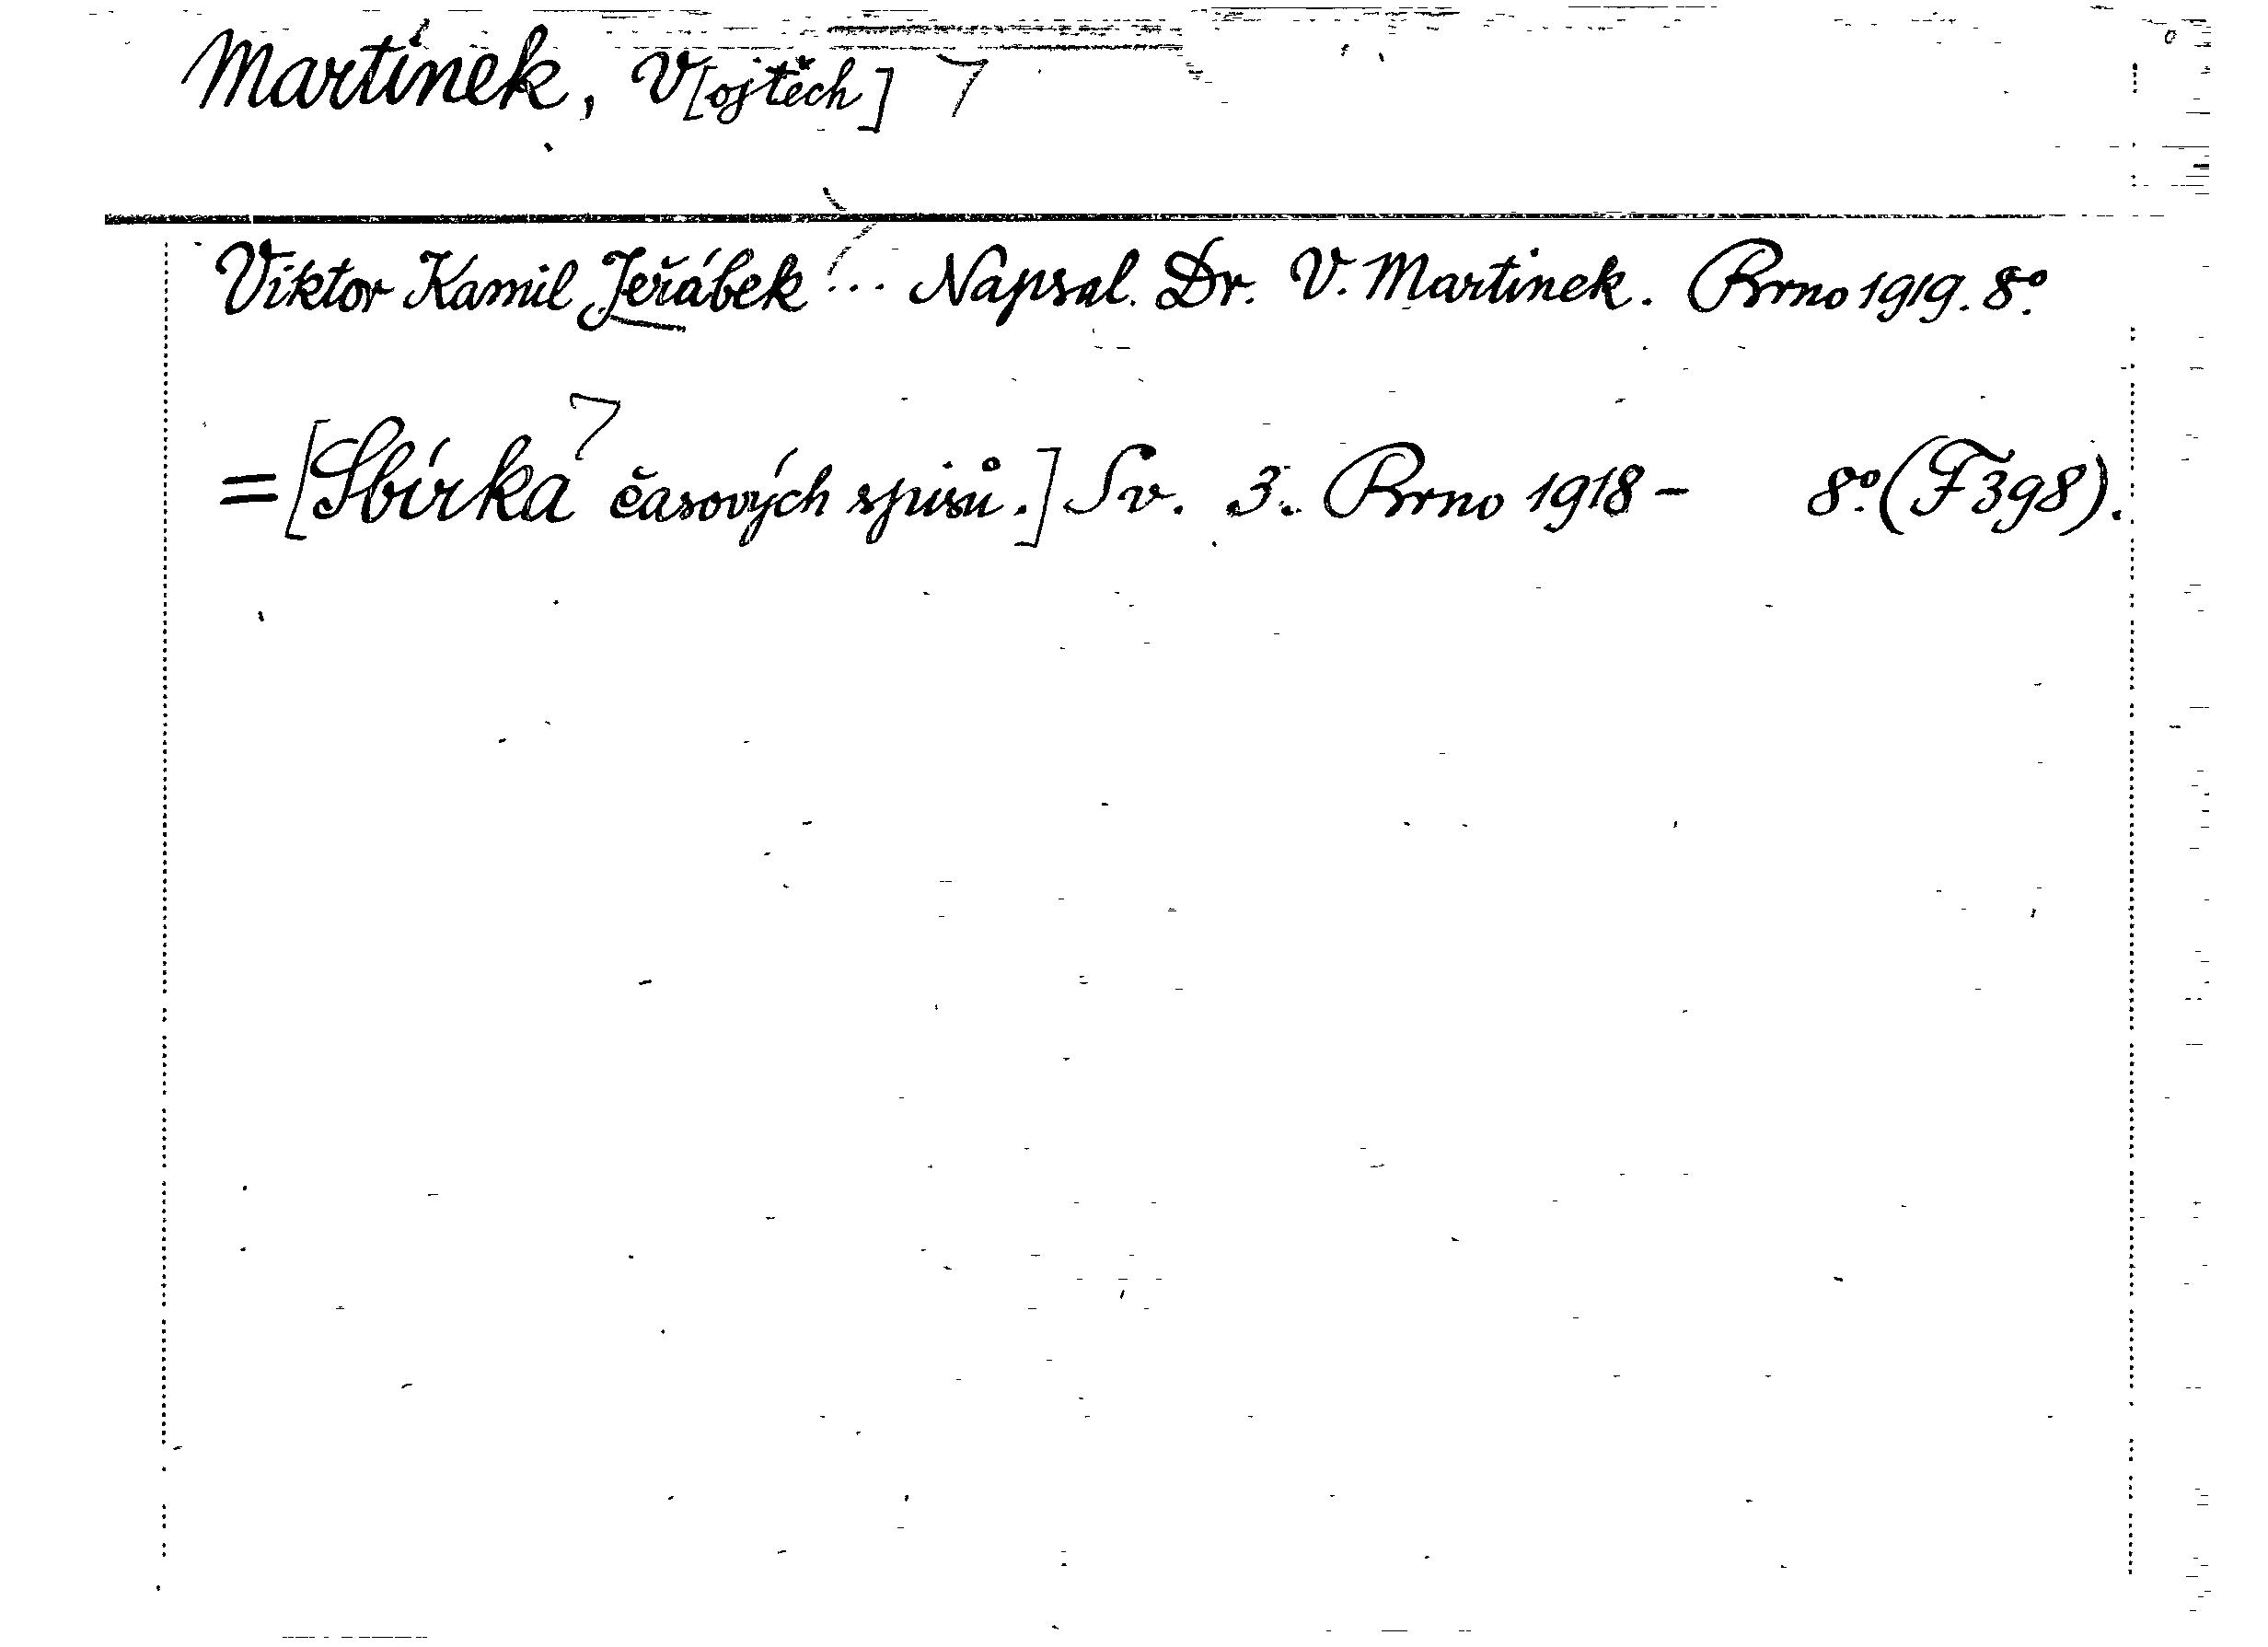 Martínek, V[ojtěch]
Viktor Kamil Jeřábek ... Napsal Dr. V. Martinek. Brno 1919. 8º.
= [Sbírka časových spisů.] Sv. 3. Brno 1918 - 8º. (F 398).